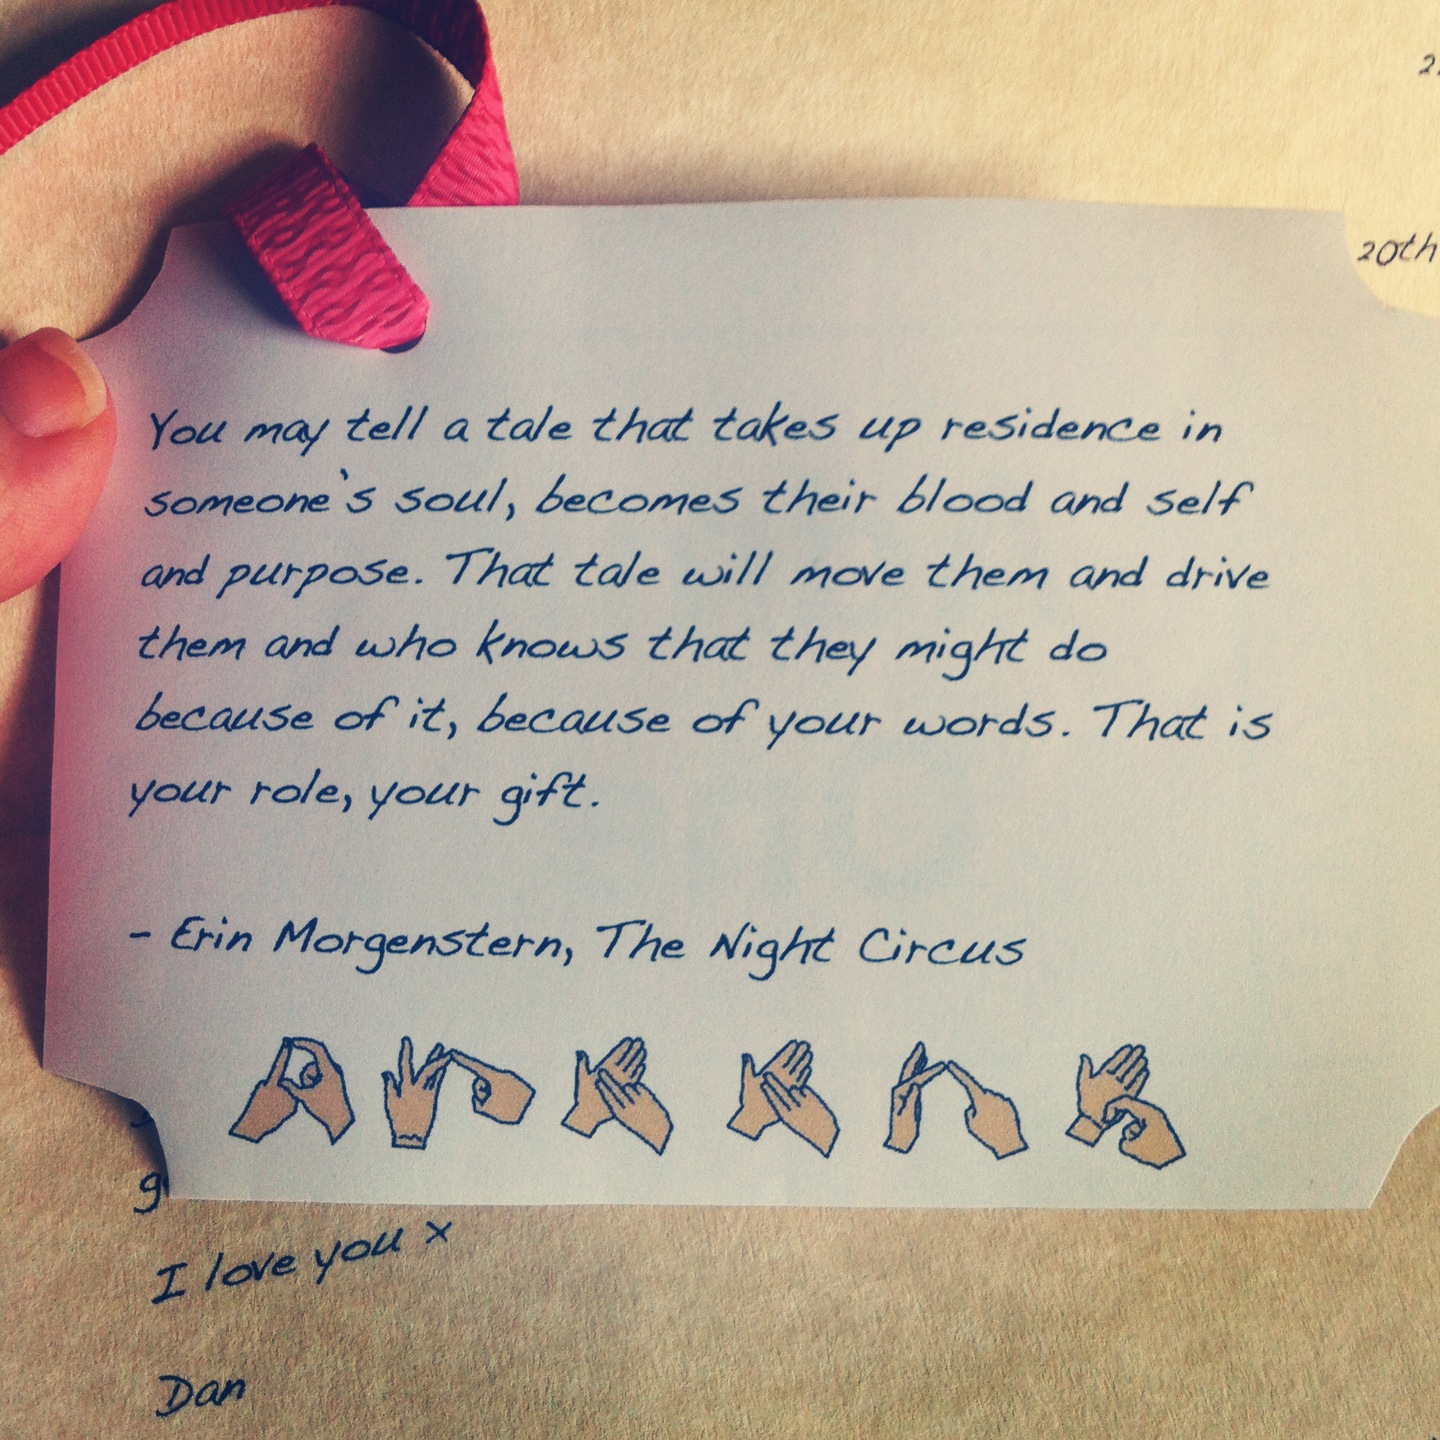 20th
You may tell a tale that takes up residence in
someone's soul, becomes their blood and self
and purpose. That tale will move them and drive
them and who knows that they might do
because of it, because of your words. That is
your role, your gift.
- Erin Morgenstern, The Night Circus
I love you x
Dan